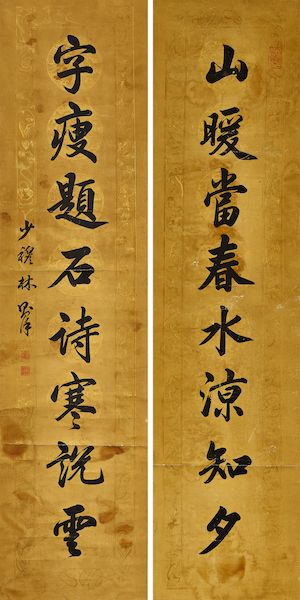 山暖當春水涼知夕
字瘦題石詩寒說雲
少穆林則徐